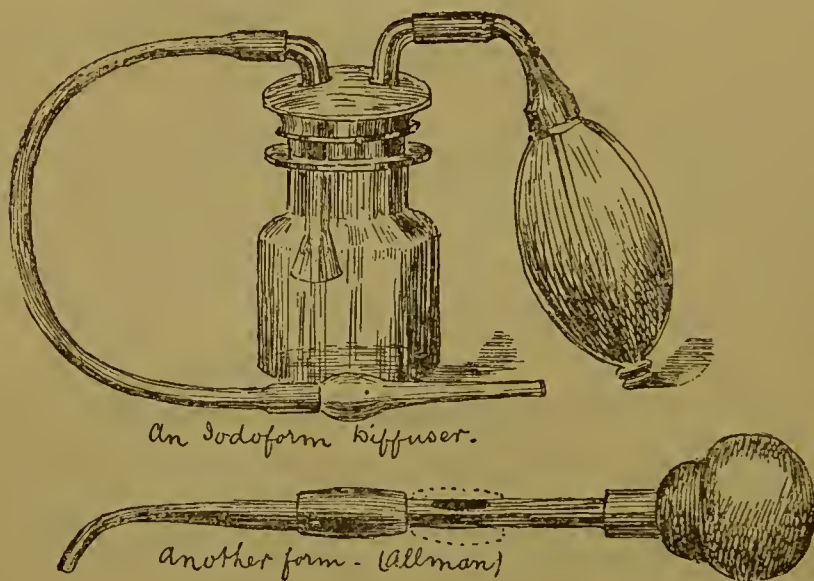 An Iodoform Diffuser.
Another form - (Allman)